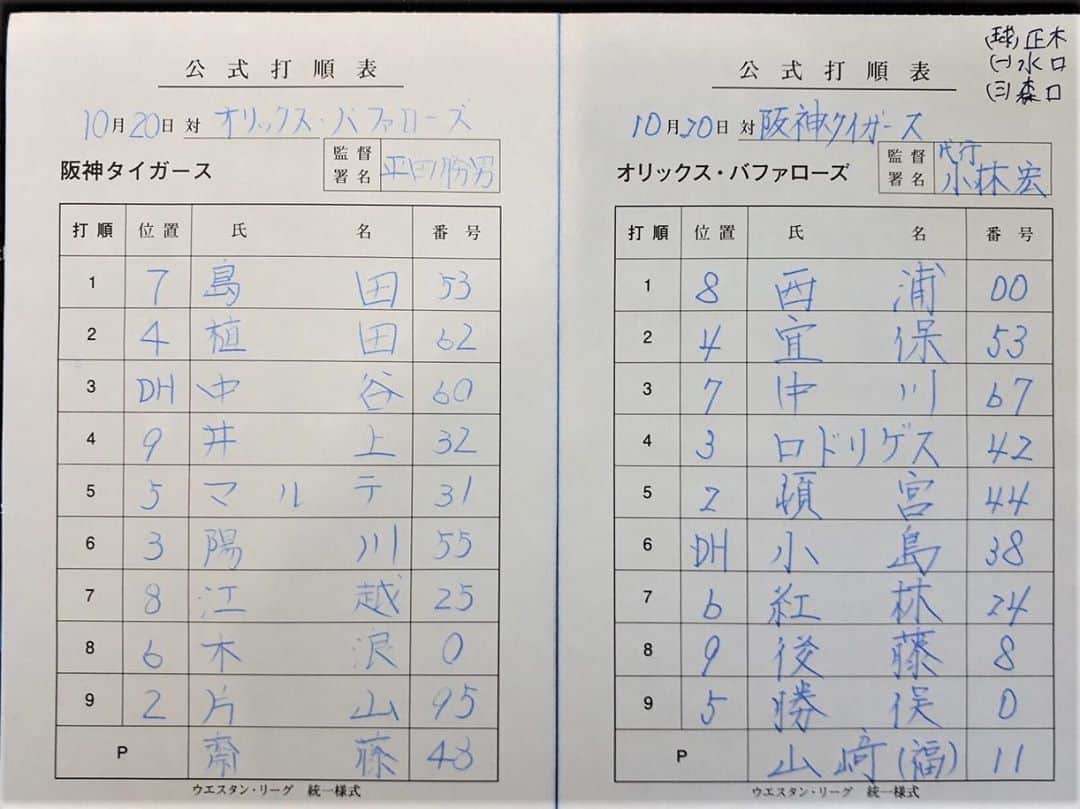 公式打順表
10月20日 対 オリックス・バファローズ
阪神タイガース 監督署名 平田勝男
打順 位置 氏名 番号
1 7 島田 53
2 4 植田 62
3 DH 中谷 60
4 9 井上 32
5 5 マルテ 31
6 3 陽川 55
7 8 江越 25
8 6 木浪 0
9 2 片山 95
P 齋藤 48
ウエスタン・リーグ 統一様式
(球)正木
(一)水口
(三)森口
公式打順表
10月20日 対 阪神タイガース
オリックス・バファローズ 監督署名 代行 小林宏
打順 位置 氏名 番号
1 8 西浦 00
2 4 宜保 53
3 7 中川 67
4 3 ロドリゲス 42
5 2 頓宮 44
6 DH 小島 38
7 6 紅林 24
8 9 後藤 8
9 5 勝俣 0
P 山﨑(福) 11
ウエスタン・リーグ 統一様式